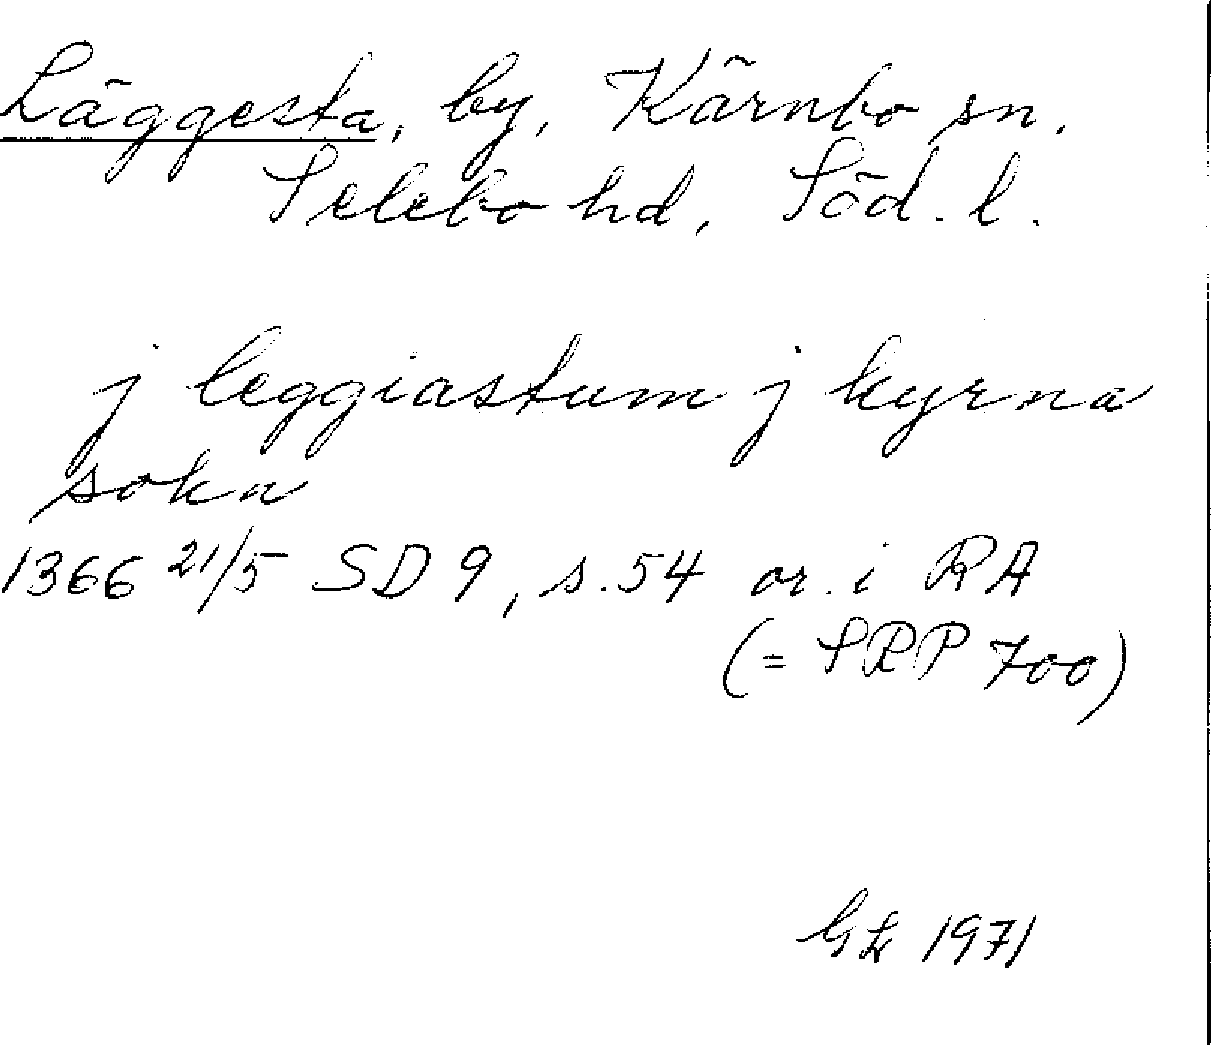 Läggesta, by, Kärnbo sn.
Selebo hd, Söd. l.
j leggiastum j kyrna
sokn
1366 21/5 SD 9, s. 54 or. i RA
(= SRP 700)
1971